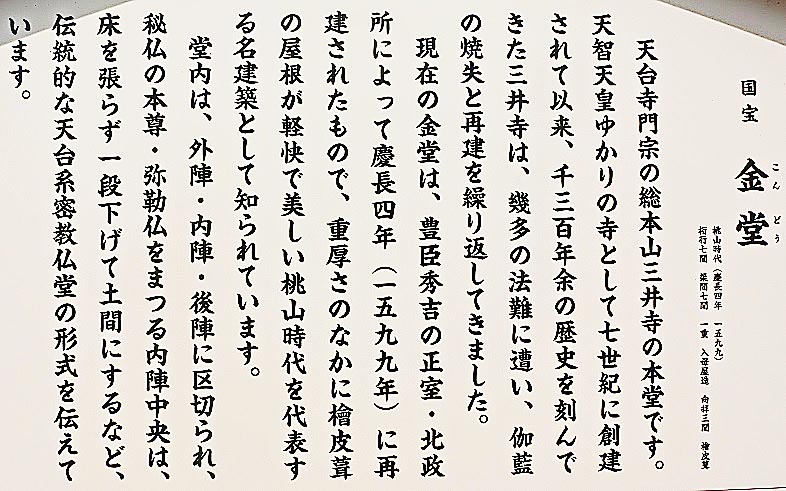 国宝
金堂
こんどう
桃山時代（慶長四年　一五九九）
桁行七間　梁間七間　一重　入母屋造　向拝三間　檜皮葺
天台寺門宗の総本山三井寺の本堂です。
天智天皇ゆかりの寺として七世紀に創建
されて以来、千三百年余の歴史を刻んで
きた三井寺は、幾多の法難に遭い、伽藍
の焼失と再建を繰り返してきました。
現在の金堂は、豊臣秀吉の正室・北政
所によって慶長四年（一五九九年）に再
建されたもので、重厚さのなかに檜皮葺
の屋根が軽快で美しい桃山時代を代表す
る名建築として知られています。
堂内は、外陣・内陣・後陣に区切られ、
秘仏の本尊・弥勒仏をまつる内陣中央は、
床を張らず一段下げて土間にするなど、
伝統的な天台系密教仏堂の形式を伝えて
います。